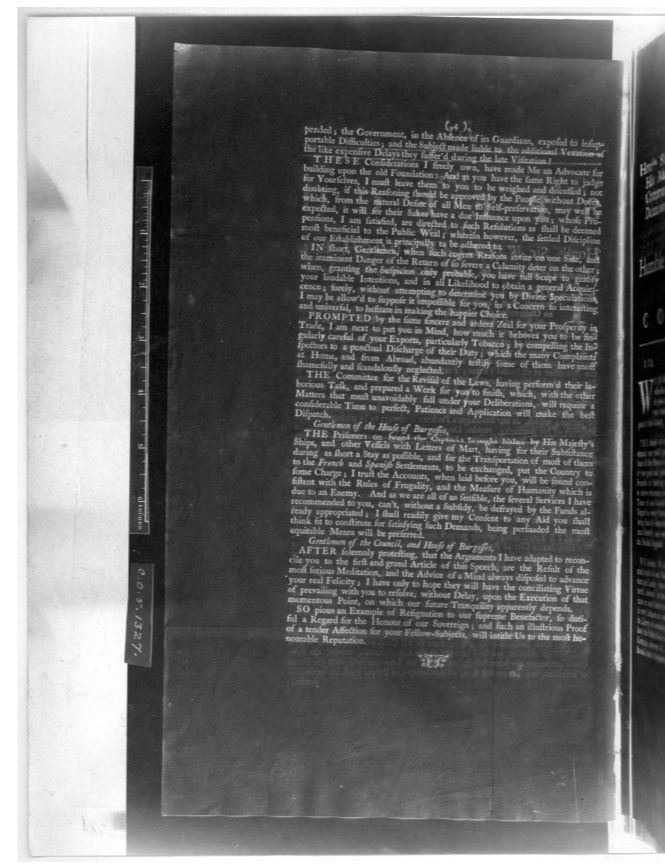 ( 4 )
pended; the Government, in the Absence of its Guardians, exposed to insup-
portable Difficulties; and the Subject made liable to the additional Vexation of
the like expensive Delays they suffer'd during the late Visitation?
THESE Considerations I freely own, have made Me an Advocate for
building upon the old Foundation: And as you have the same Right to judge
for Yourselves, I must leave them to you to be weighed and discussed; not
doubting, if this Reasoning should be approved by the People without Doors,
which, from the natural Desire of all Men to Self-preservation, may well be
expected, it will for their Sakes have a due Influence upon you; whose Pro-
pensions, I am satisfied, are directed to such Resolutions as shall be deemed
most beneficial to the Public Weal; wherein however, the settled Discipline
of our Establishment is principally to be adhered to.
IN short, Gentlemen, when such cogent Reasons invite on one Side, and
the imminent Danger of the Return of so severe a Calamity deter on the other;
when, granting the Suspicion only probable, you have full Scope to gratify
your laudable Intentions, and in all Likelihood to obtain a general Acquies-
cence; surely, without attempting to determine you by Divine Speculations,
I may be allow'd to suppose it impossible for you, in a Concern so interesting
and universal, to hesitate in making the happier Choice.
PROMPTED by the same sincere and ardent Zeal for your Prosperity in
Trade, I am next to put you in Mind, how much it behoves you to be sin-
gularly careful of your Exports, particularly Tobacco; by compelling the In-
spectors to a punctual Discharge of their Duty; which the many Complaints
at Home, and from Abroad, abundantly testify some of them have most
shamefully and scandalously neglected.
THE Committee for the Revisal of the Laws, having perform'd their la-
borious Task, and prepared a Work for you to finish, which, with the other
Matters that must unavoidably fall under your Deliberations, will require a
considerable Time to perfect, Patience and Application will make the best
Dispatch.
Gentlemen of the House of Burgesses,
THE Prisoners on board the Captures brought hither by His Majesty's
Ships, and other Vessels with Letters of Mart, having for their Subsistance
during as short a Stay as possible, and for the Transportation of most of them
to the French and Spanish Settlements, to be exchanged, put the Country to
some Charge; I trust the Accounts, when laid before you, will be found con-
sistent with the Rules of Frugality, and the Measure of Humanity which is
due to an Enemy. And as we are all of us sensible, the several Services I have
recommended to you, can't, without a Subsidy, be defrayed by the Funds al-
ready appropriated; I shall readily give my Consent to any Aid you shall
think fit to constitute for satisfying such Demands, being persuaded the most
equitable Means will be preferred.
Gentlemen of the Council, and House of Burgesses,
AFTER solemnly protesting, that the Arguments I have adapted to recon-
cile you to the first and grand Article of this Speech, are the Result of the
most serious Meditation, and the Advice of a Mind always disposed to advance
your real Felicity; I have only to hope they will have the conciliating Virtue
of prevailing with you to resolve, without Delay, upon the Execution of that
momentous Point, on which our future Tranquility apparently depends.
SO pious an Example of Resignation to our supreme Benefactor, so duti-
ful a Regard for the Honour of our Sovereign; and such an illustrious Proof
of a tender Affection for your Fellow-Subjects, will intitle Us to the most ho-
nourable Reputation.
C.O.5/1327.